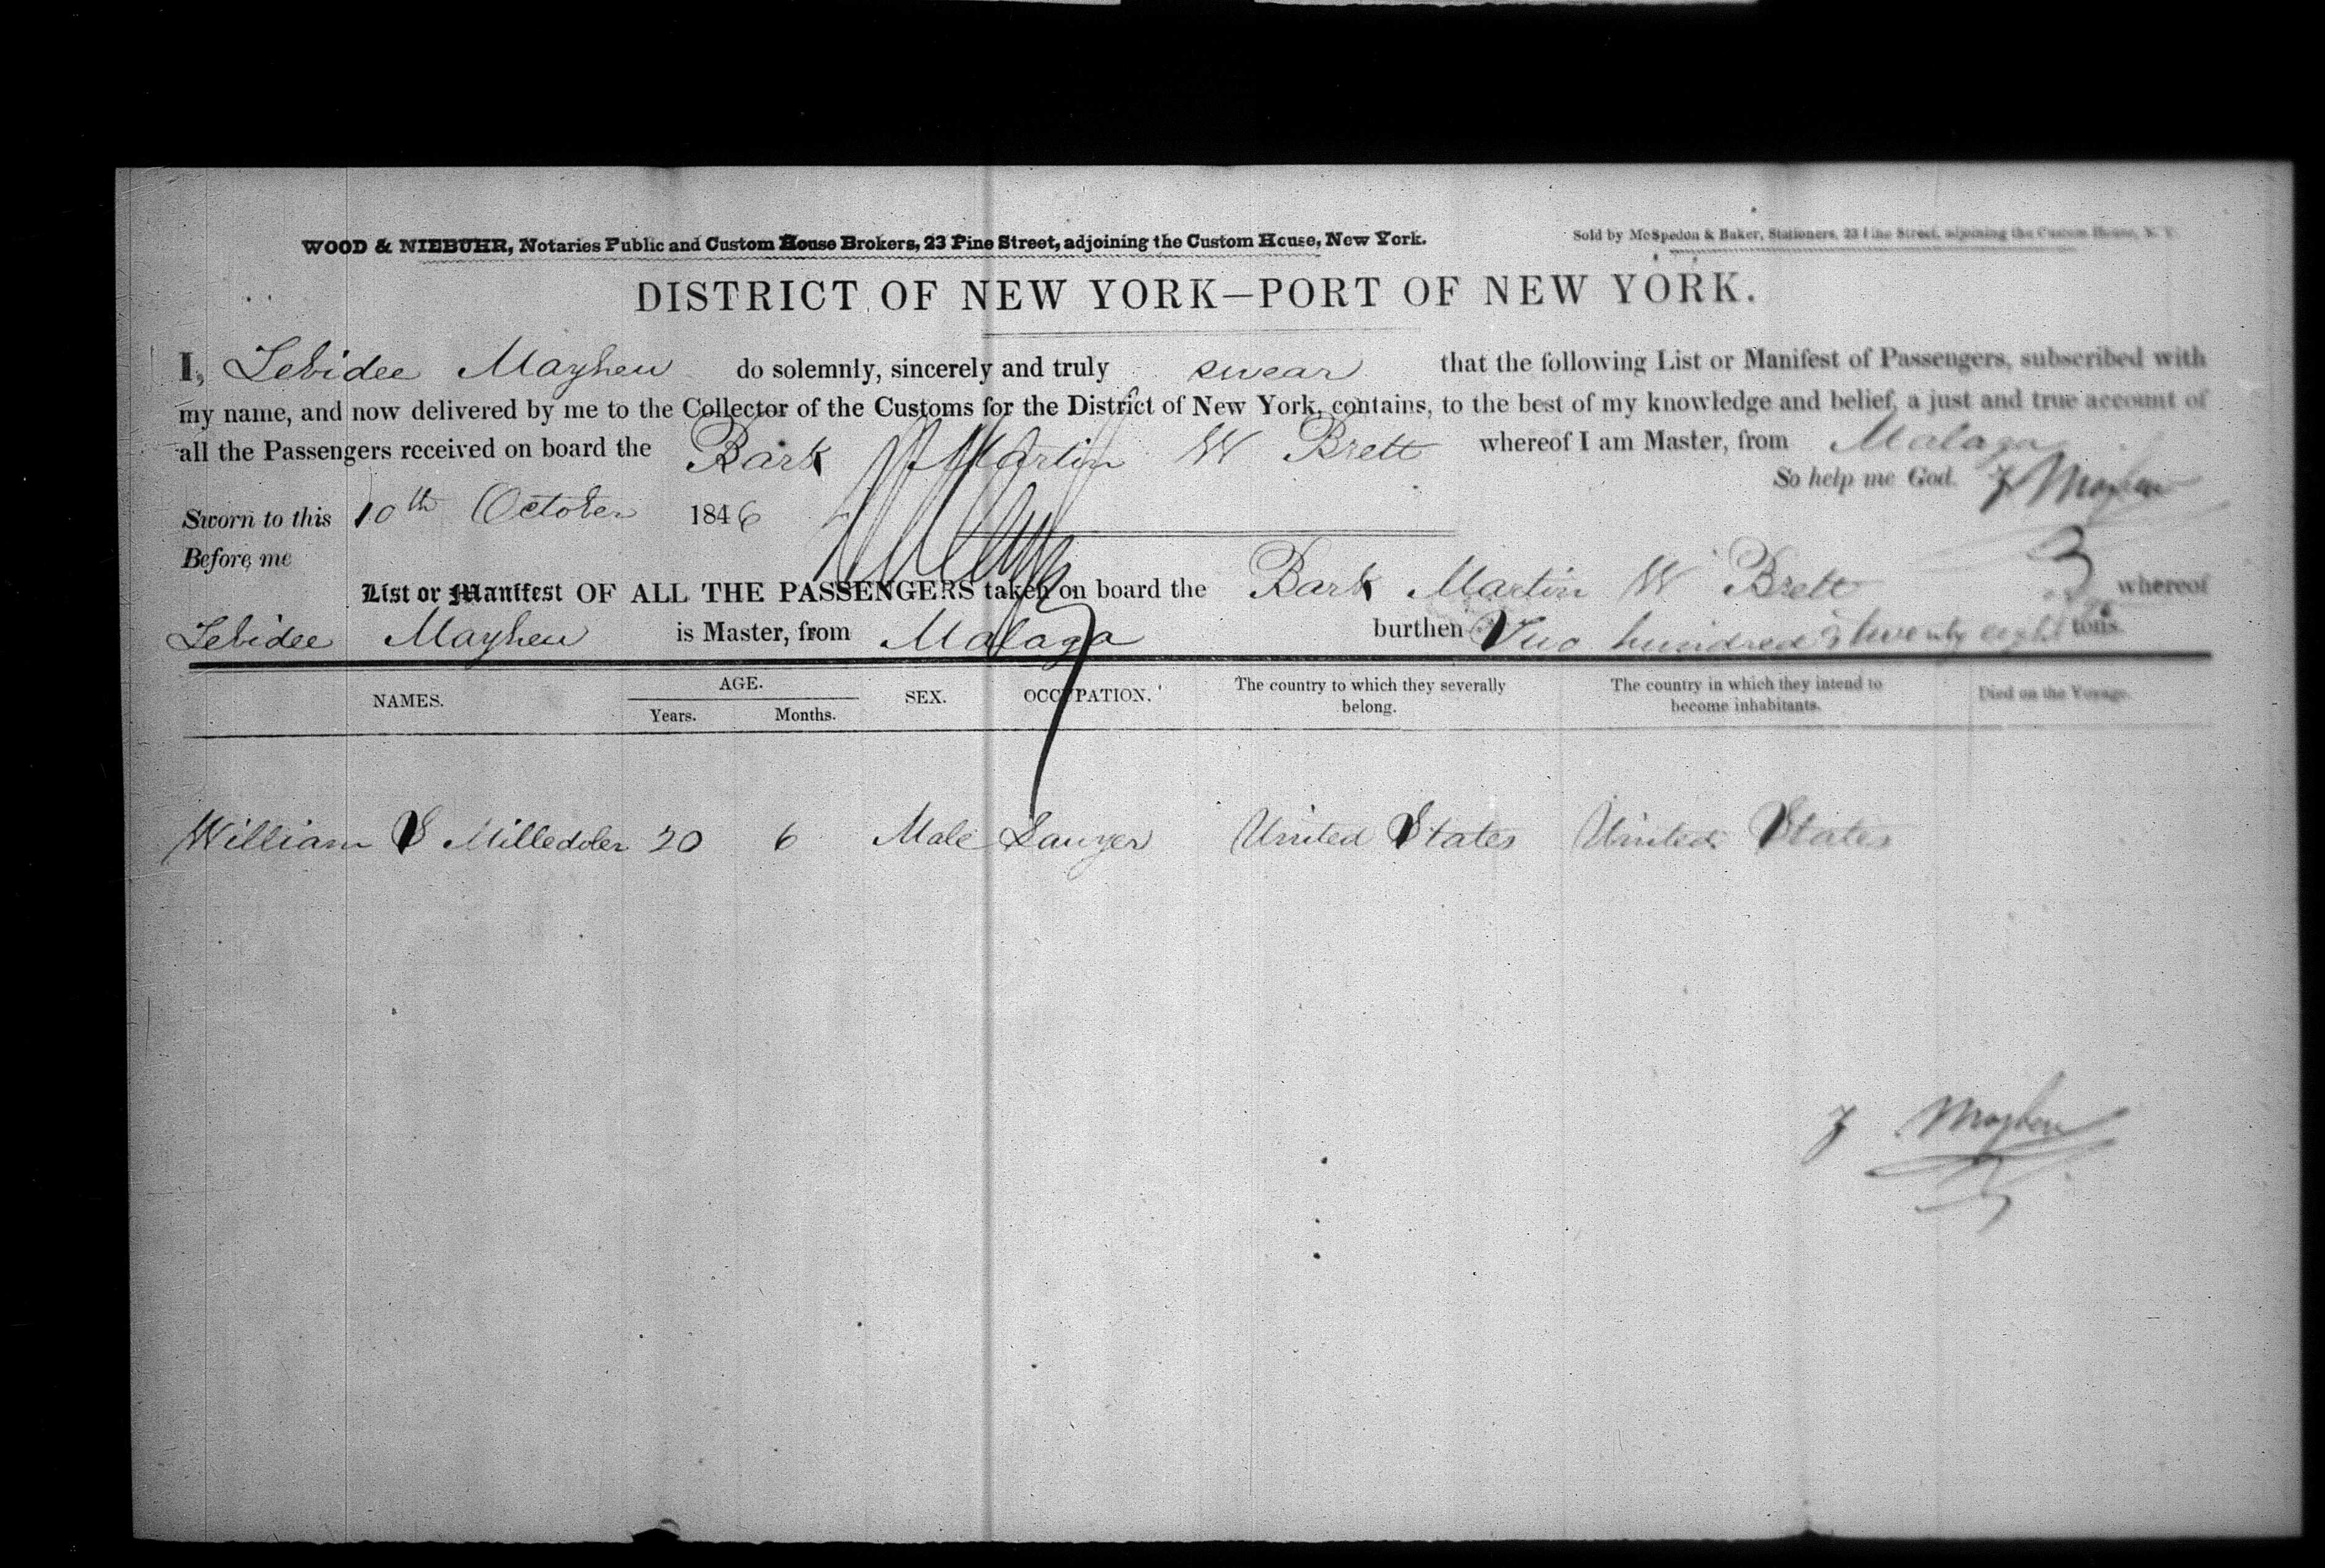 WOOD & NIEBUHR, Notaries Public and Custom House Brokers, 23 Pine Street, adjoining the Custom House, New York.
Sold by McSpedon & Baker, Stationers, 23 Pine Street, adjoining the Custom House, N. Y.
DISTRICT OF NEW YORK—PORT OF NEW YORK.
I, Zebidee Mayhew do solemnly, sincerely and truly swear that the following List or Manifest of Passengers, subscribed with
my name, and now delivered by me to the Collector of the Customs for the District of New York, contains, to the best of my knowledge and belief, a just and true account of
all the Passengers received on board the Bark Martin W Brett whereof I am Master, from Malaga
So help me God. Z Mayhew
Sworn to this 10th October 1846
Before me
List or Manifest OF ALL THE PASSENGERS taken on board the Bark Martin W Brett whereof
Zebidee Mayhew is Master, from Malaga burthen Two hundred & twenty eight tons.
NAMES. AGE. Years. Months. SEX. OCCUPATION. The country to which they severally belong. The country in which they intend to become inhabitants. Died on the Voyage.
William S Milledoler 20 6 Male Lawyer United States United States
Z Mayhew